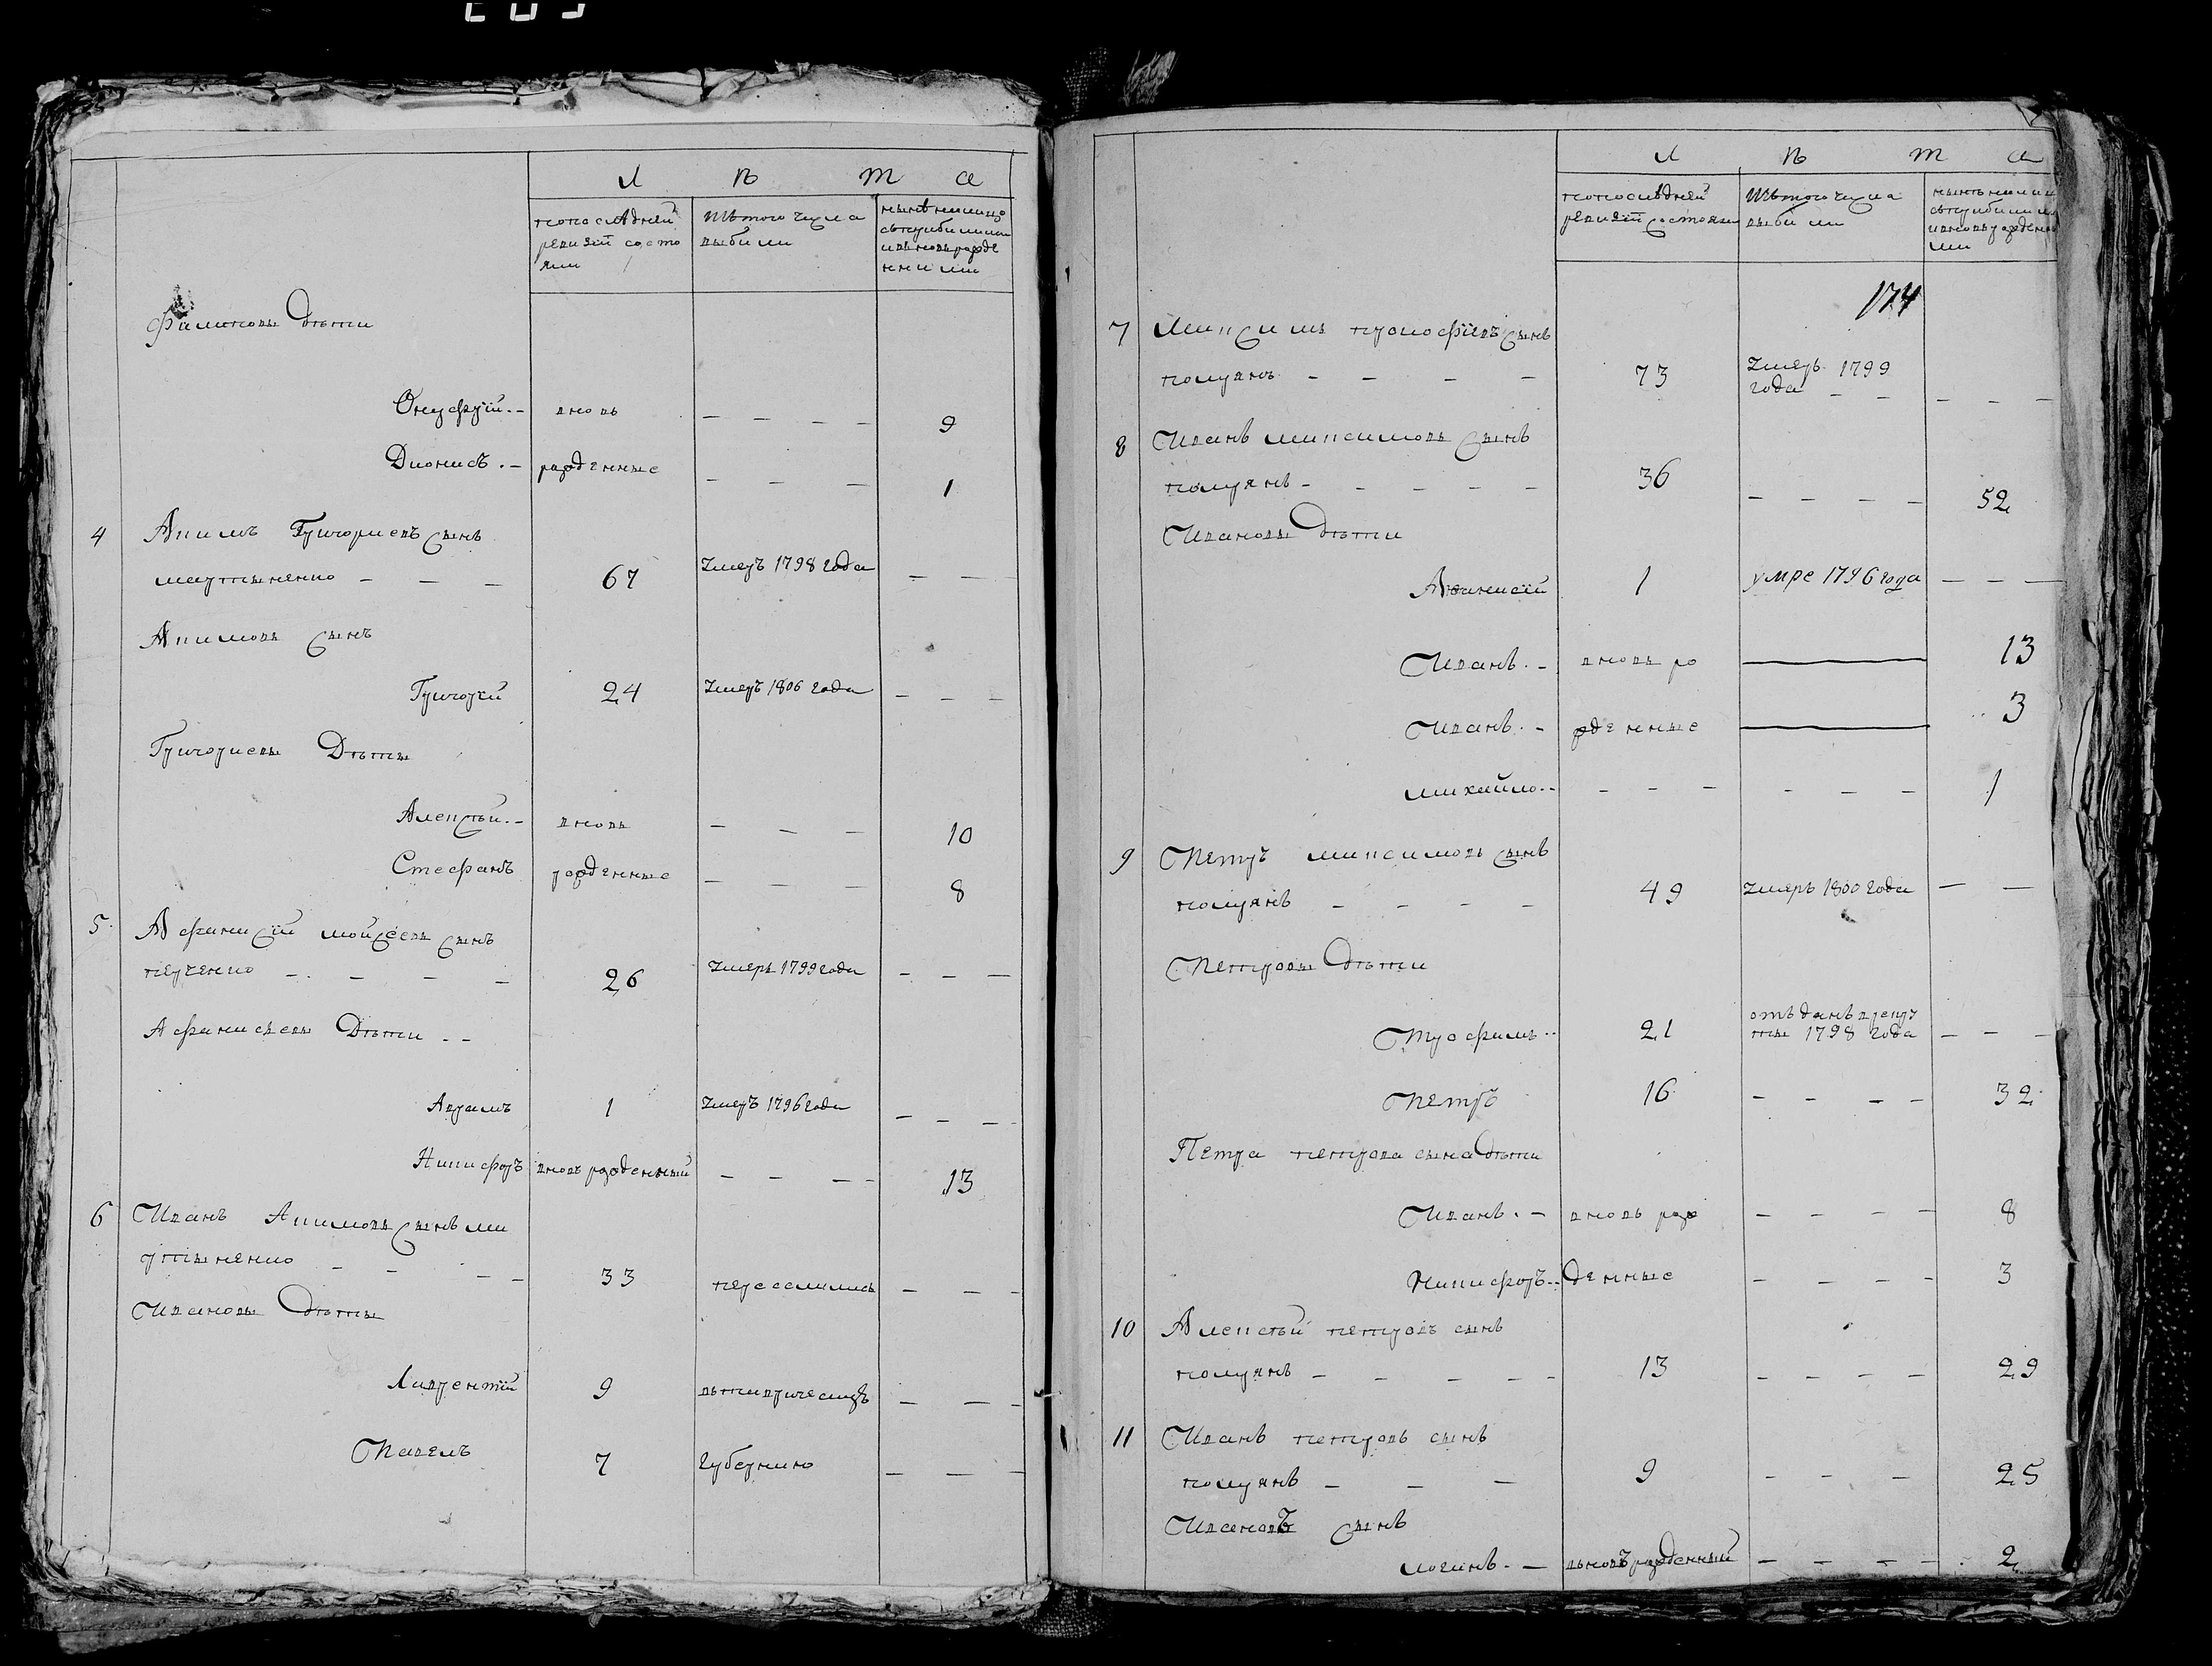 Л ѣ т а
попоследней
ревизій состо
яли
Изтого числа
выбыли
ныне налицо
сприбылыми
ивновь рожде
нными
Филиповы Дѣти
Онуфрій. — вновь — — — — 9
Дионисъ. — рожденные — — — 1
4 Акимъ Григориевъ Сынъ
мартыненко — — — 67 Умеръ 1798 года — —
Акимовъ Сынъ
Григорий 24 Умеръ 1806 года — — —
Григориевы Дѣты
Алексѣй. — вновь — — — 10
Стефанъ рожденные — — — 8
5 Афанасій мойсеевъ сынъ
перченко — — — — 26 Умеръ 1799 года — — —
Афанасьевы Дѣти — —
Аврамъ 1 Умеръ 1796 года — — —
Никифоръ вновь рожденный — — — — 13
6 Иванъ Акимовъ Сынъ ма
ртыненко — — — — 33 переселились — — —
Ивановы Дѣты
Лаврентій 9 — — —
Павелъ 7 Губернию — — —
Л ѣ т а
попоследней
ревизій состояли
Изтого числа
выбыли
сприбылыми
ивновь рожденны
ми
174
7 Максимъ прокофіевъ Сынъ
полуянъ — — — — 73 Умеръ 1799
года — — — — —
8 Иванъ максимовъ Сынъ
полуянъ — — — — — 36 — — — — 52
Ивановы Дѣти
Афанасій 1 умре 1796 года — — —
Иванъ. — вновь ро — 13
Иванъ. — жденные — 3
михайло.. — — — — — — 1
9 Петръ максимовъ Сынъ
полуянъ — — — — 49 Умеръ 1800 года — —
Петровы Дѣти
Трофимъ.. 21 отъданъ врекру
ты 1798 года — — —
Петръ 16 — — — — 32
Петра петрова сына дѣти
Иванъ. — вновь рож — — — — 8
Никифоръ.. денные — — — — 3
10 Алексѣй петровъ сынъ
полуянъ — — — — — 13 — — — — 29
11 Иванъ петровъ сынъ
полуянъ — — — 9 — — — 25
Ивановъ Сынъ
логинъ. — вьновъ рожденный — — — — 2